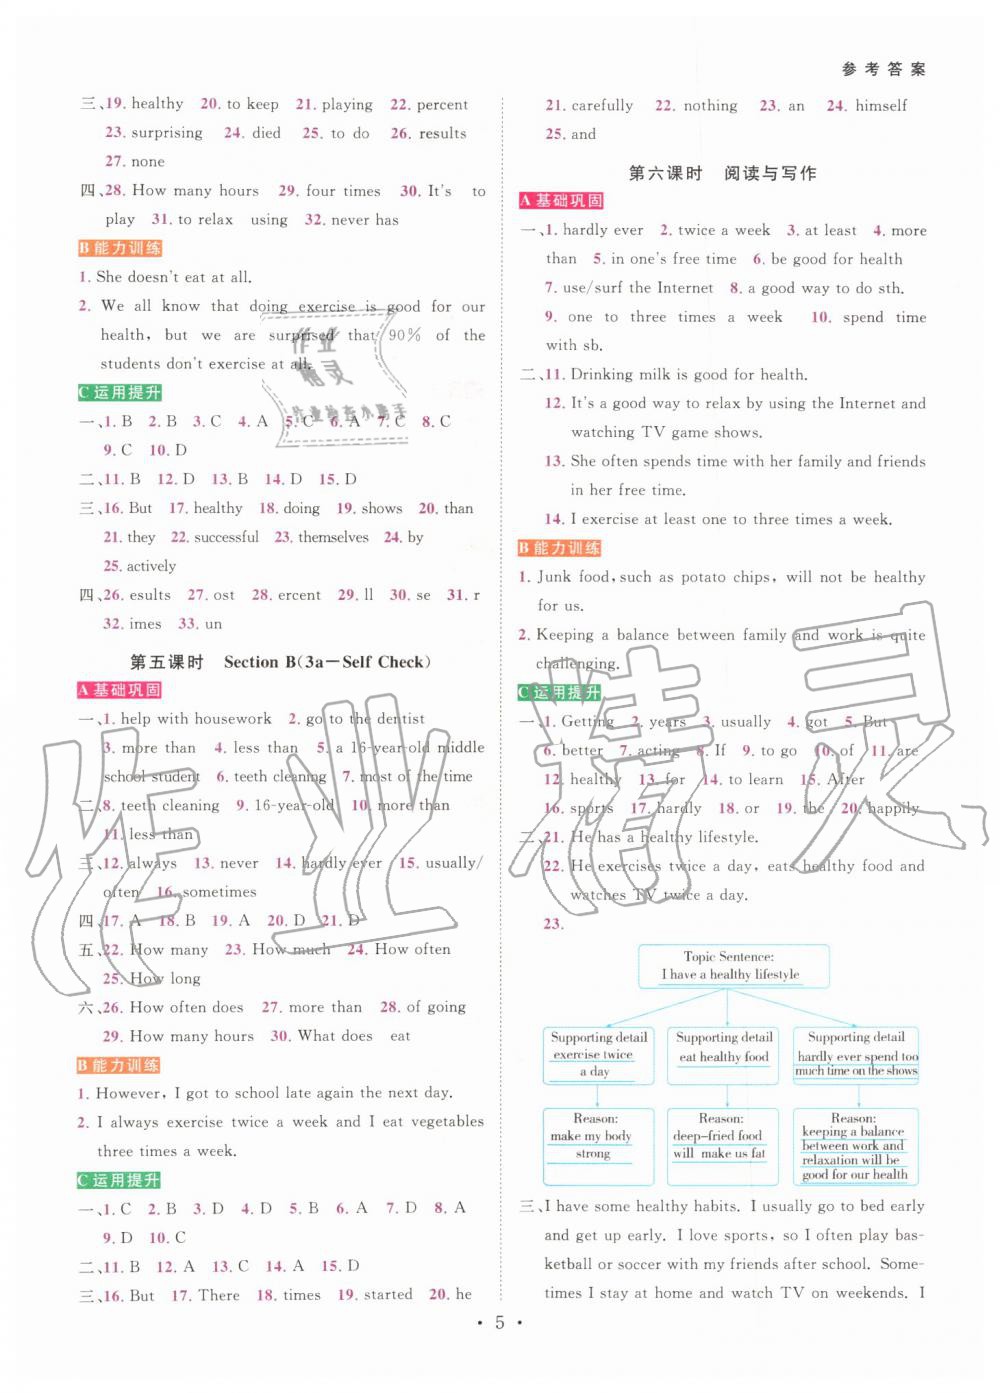 参考答案
三、19. healthy 20. to keep 21. playing 22. percent
23. surprising 24. died 25. to do 26. results
27. none
四、28. How many hours 29. four times 30. It's to
play 31. to relax using 32. never has
B 能力训练
1. She doesn't eat at all.
2. We all know that doing exercise is good for our
health, but we are surprised that 90% of the
students don't exercise at all.
C 运用提升
一、1. B 2. B 3. C 4. A 5. C 6. A 7. C 8. C
9. C 10. D
二、11. B 12. D 13. B 14. D 15. D
三、16. But 17. healthy 18. doing 19. shows 20. than
21. they 22. successful 23. themselves 24. by
25. actively
四、26. esults 27. ost 28. ercent 29. ll 30. se 31. r
32. imes 33. un
第五课时 Section B(3a—Self Check)
A 基础巩固
一、1. help with housework 2. go to the dentist
3. more than 4. less than 5. a 16-year-old middle
school student 6. teeth cleaning 7. most of the time
二、8. teeth cleaning 9. 16-year-old 10. more than
11. less than
三、12. always 13. never 14. hardly ever 15. usually/
often 16. sometimes
四、17. A 18. B 19. A 20. D 21. D
五、22. How many 23. How much 24. How often
25. How long
六、26. How often does 27. more than 28. of going
29. How many hours 30. What does eat
B 能力训练
1. However, I got to school late again the next day.
2. I always exercise twice a week and I eat vegetables
three times a week.
C 运用提升
一、1. C 2. B 3. D 4. D 5. B 6. B 7. D 8. A
9. D 10. C
二、11. B 12. A 13. C 14. A 15. D
三、16. But 17. There 18. times 19. started 20. he
21. carefully 22. nothing 23. an 24. himself
25. and
第六课时 阅读与写作
A 基础巩固
一、1. hardly ever 2. twice a week 3. at least 4. more
than 5. in one's free time 6. be good for health
7. use/surf the Internet 8. a good way to do sth.
9. one to three times a week 10. spend time
with sb.
二、11. Drinking milk is good for health.
12. It's a good way to relax by using the Internet and
watching TV game shows.
13. She often spends time with her family and friends
in her free time.
14. I exercise at least one to three times a week.
B 能力训练
1. Junk food, such as potato chips, will not be healthy
for us.
2. Keeping a balance between family and work is quite
challenging.
C 运用提升
一、1. Getting 2. years 3. usually 4. got 5. But
6. better 7. acting 8. If 9. to go 10. of 11. are
12. healthy 13. for 14. to learn 15. After
16. sports 17. hardly 18. or 19. the 20. happily
二、21. He has a healthy lifestyle.
22. He exercises twice a day, eats healthy food and
watches TV twice a day.
23.
Topic Sentence:
I have a healthy lifestyle
Supporting detail
exercise twice
a day
Supporting detail
eat healthy food
Supporting detail
hardly ever spend too
much time on the shows
Reason:
make my body
strong
Reason:
deep-fried food
will make us fat
Reason:
keeping a balance
between work and
relaxation will be
good for our health
三、I have some healthy habits. I usually go to bed early
and get up early. I love sports, so I often play bas-
ketball or soccer with my friends after school. Some-
times I stay at home and watch TV on weekends. I
· 5 ·
作业精灵
作业精灵
作业者在小助手